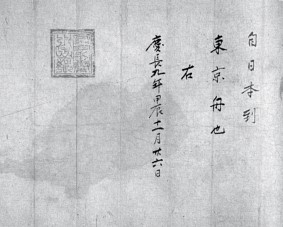 自日本到
東京舟也
右
慶長九年甲辰十一月廿六日